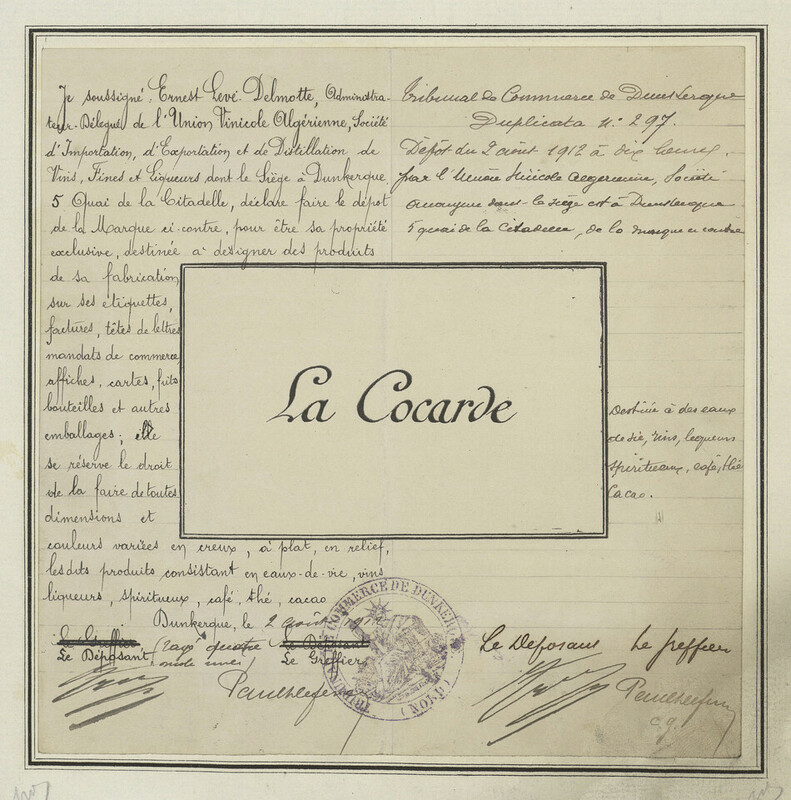 Je soussigné, Ernest Levé-Delmotte, Administra-
teur-Délégué de l'Union Vinicole Algérienne, Société
d'Importation, d'Exportation et de Distillation de
Vins, Fines et Liqueurs dont le Siège à Dunkerque,
5 Quai de la Citadelle, déclare faire le dépot
de la Marque ci-contre, pour être sa propriété
exclusive, destinée à désigner des produits
de sa fabrication
sur ses étiquettes,
factures, têtes de lettres
mandats de commerce
affiches, cartes, fûts
bouteilles et autres
emballages; elle
se réserve le droit
de la faire de toutes
dimensions et
couleurs variées en creux, à plat, en relief,
les dits produits consistant en eaux-de-vie, vins
liqueurs, spiritueux, café, thé, cacao
Dunkerque, le 2 août
Le Déposant
Le Greffier
La Cocarde
Tribunal de Commerce de Dunkerque
Duplicata N° 297.
Dépôt du 2 août 1912 à dix heures,
par l'Union Vinicole Algérienne, Société
anonyme dont le siège est à Dunkerque
5 quai de la Citadelle, de la marque ci contre
Destinée à des eaux
de vie, vins, liqueurs
spiritueux, café, thé
Cacao.
Le Déposant Le Greffier
TRIBUNAL DE COMMERCE DE DUNKERQUE
(NORD)